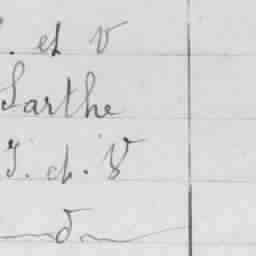 . et V
Sarthe
I. et. V
d